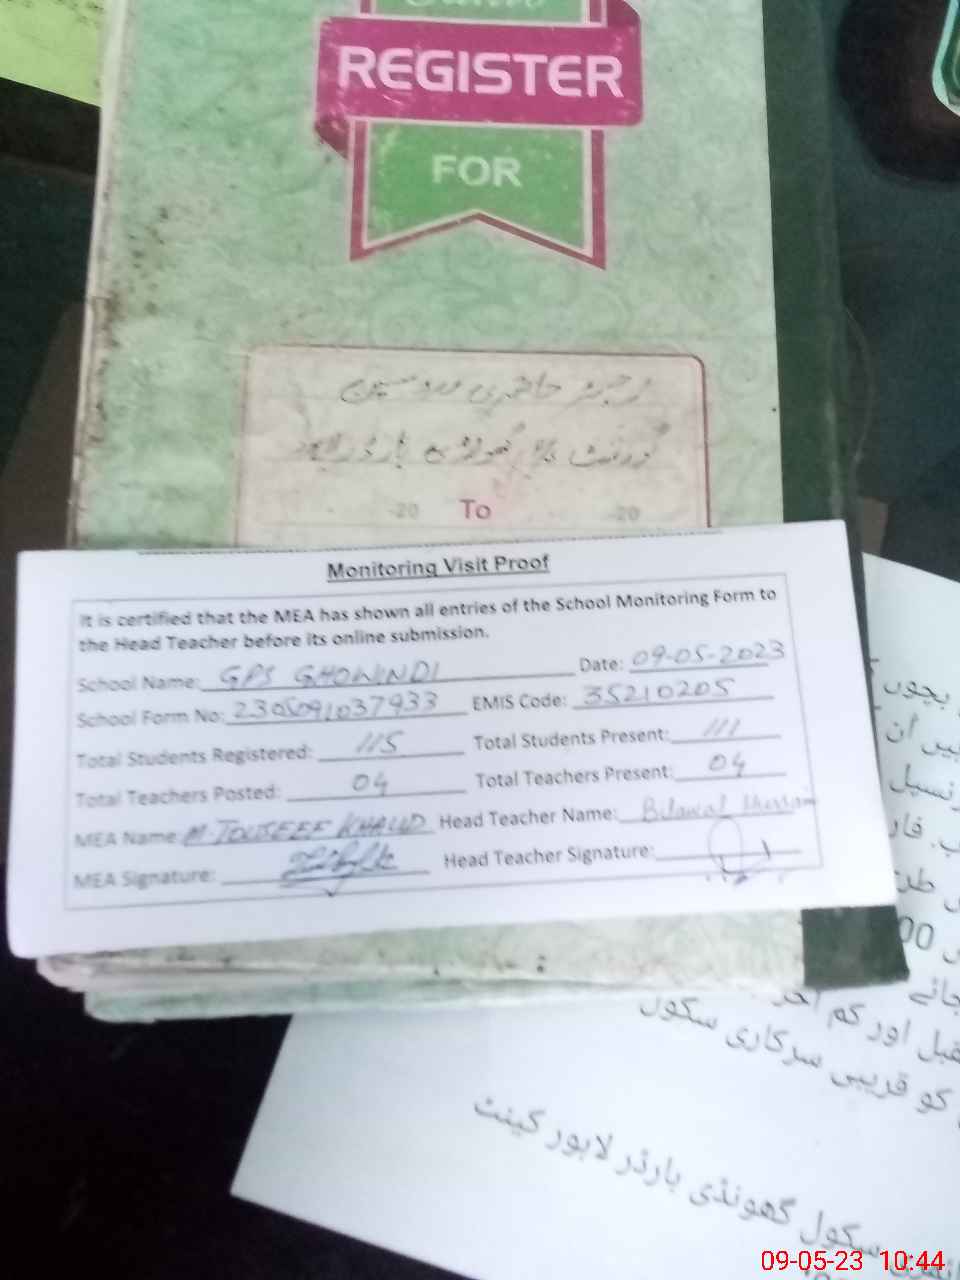 REGISTER
FOR
رجسٹر حاضری مدرسین
گورنمنٹ
-20 To -20
Monitoring Visit Proof
It is certified that the MEA has shown all entries of the School Monitoring Form to
the Head Teacher before its online submission.
School Name: GPS GHOWINDI Date: 09-05-2023
School Form No: 2305091037933 EMIS Code: 35210205
Total Students Registered: 115 Total Students Present: 111
Total Teachers Posted: 04 Total Teachers Present: 04
MEA Name: M-TOUSEEF KHALID Head Teacher Name: Bilawal Hussain
MEA Signature: Head Teacher Signature:
بچوں
ہیں اُن
00
جائے
قبل اور کم
کو قریبی سرکاری سکول
سکول گھونڈی بارڈر لاہور کینٹ
09-05-23 10:44